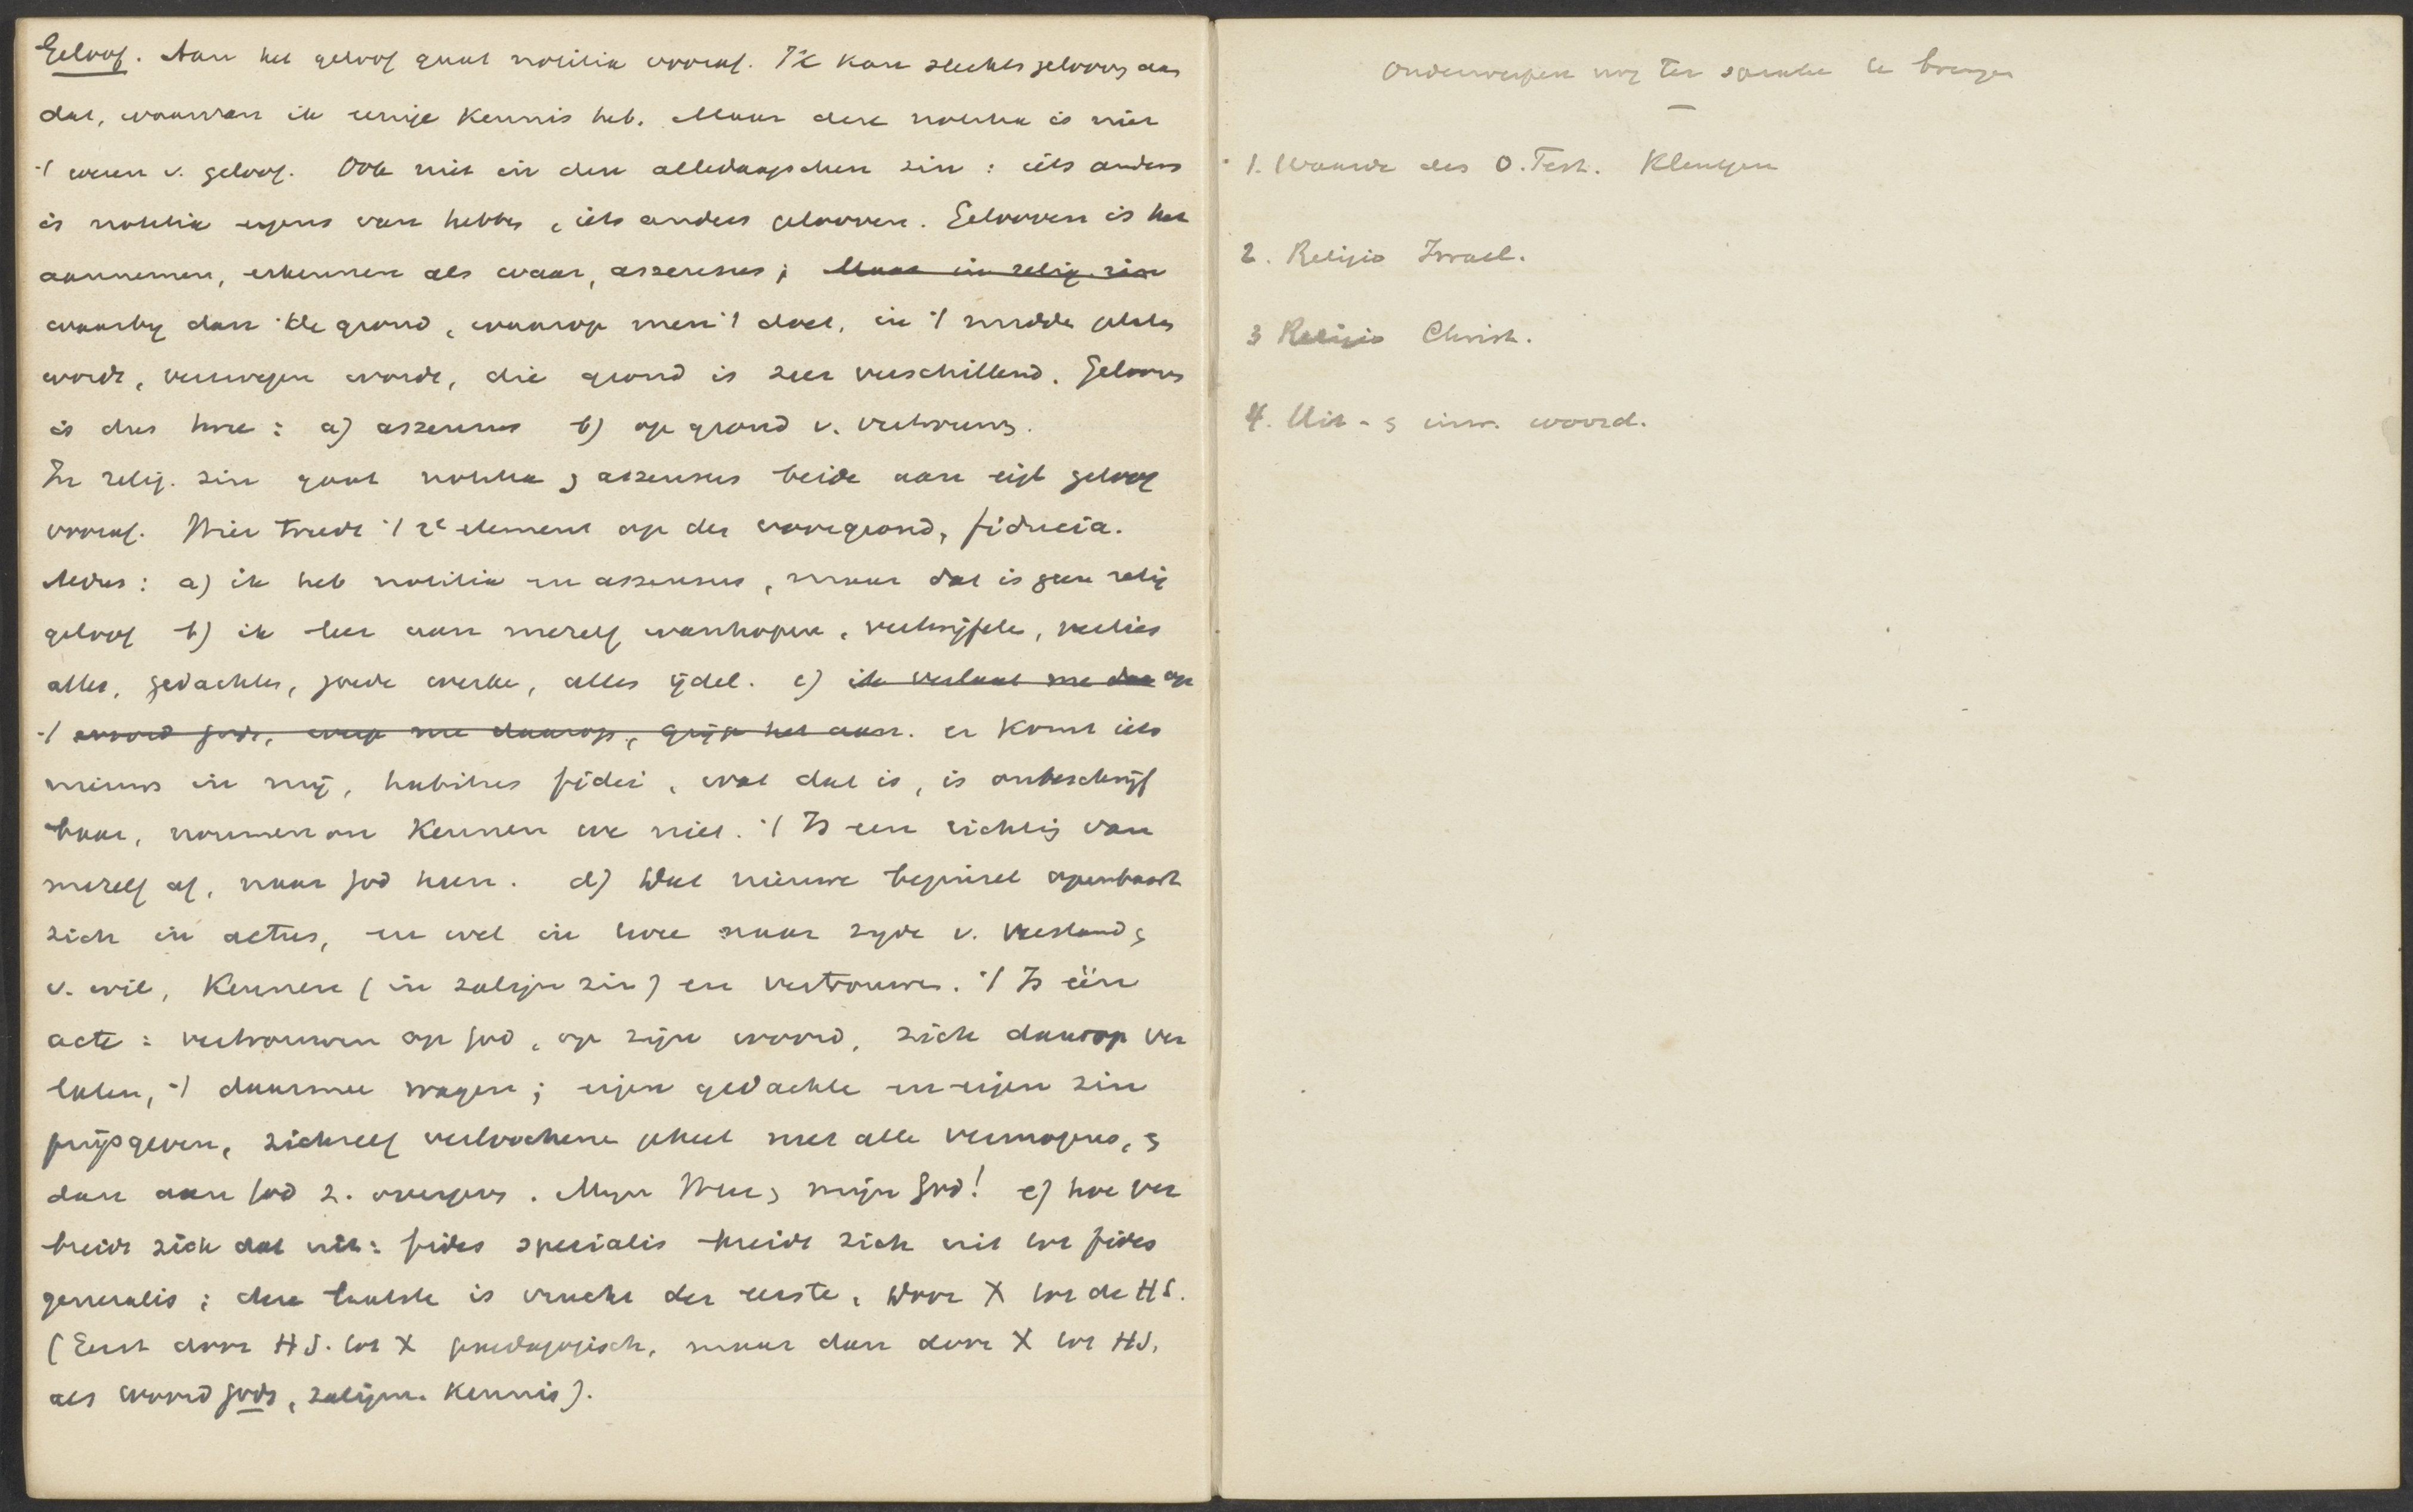 Geloof. Aan het geloof gaat notitia vooraf. Ik kan slechts gelooven aan
dat, waarvan ik eenige kennis heb. Maar deze notitia is niet
't wezen v. geloof. Ook niet in den alledaagschen zin: iets anders
is notitia ergens van hebben, iets anders gelooven. Gelooven is het
aannemen, erkennen als waar, assensus; Maar in relig. zin
waarbij dan de grond, waarop men 't doet, in 't midden gelaten
wordt, verzwegen wordt, die grond is zeer verschillend. Gelooven
is dus hier: a) assensus b) op grond v. vertrouwen.
In relig. zin gaat notitia & assensus beide aan eigl geloof
vooraf. Hier treedt 't 2e element op den voorgrond, fiducia.
Aldus: a) ik heb notitia en assensus, maar dat is geen relig
geloof b) ik leer aan mezelf wanhopen, vertwijfelen, verlies
alles, gedachten, goede werken, alles ijdel. c) ik verlaat me dan op
't woord Gods, werp me daarop, grijp het aan. er komt iets
nieuws in mij, habitus fidei, wat dat is, is onbeschrijf
baar, noumenon kennen we niet. 't Is een richting van
mezelf af, naar God heen. d) Dat nieuwe beginsel openbaart
zich in actus, en wel in twee naar zijde v. verstand &
v. wil, kennen (in zaligen zin) en vertrouwen. 't Is één
acte: vertrouwen op God, op zijn woord, zich daarop ver
laten, 't daarmee wagen; eigen gedachte en eigen zin
prijsgeven, zichzelf verloochenen geheel met alle vermogens, &
dan aan God z. overgeven. Mijn Heer & mijn God! e) hoe ver
breidt zich dat uit: fides specialis breidt zich uit tot fides
generalis; deze laatste is vrucht der eerste, Door X tot de HS.
(Eerst door HS. tot X paedagogisch, maar dan door X tot HS,
als woord Gods, zaligm. kennis).
Onderwerpen nog ter sprake te brengen
1. Waarde des O. Test.
2. Religio Israel.
3 Religio Christ.
4. Uit- & inw. woord.